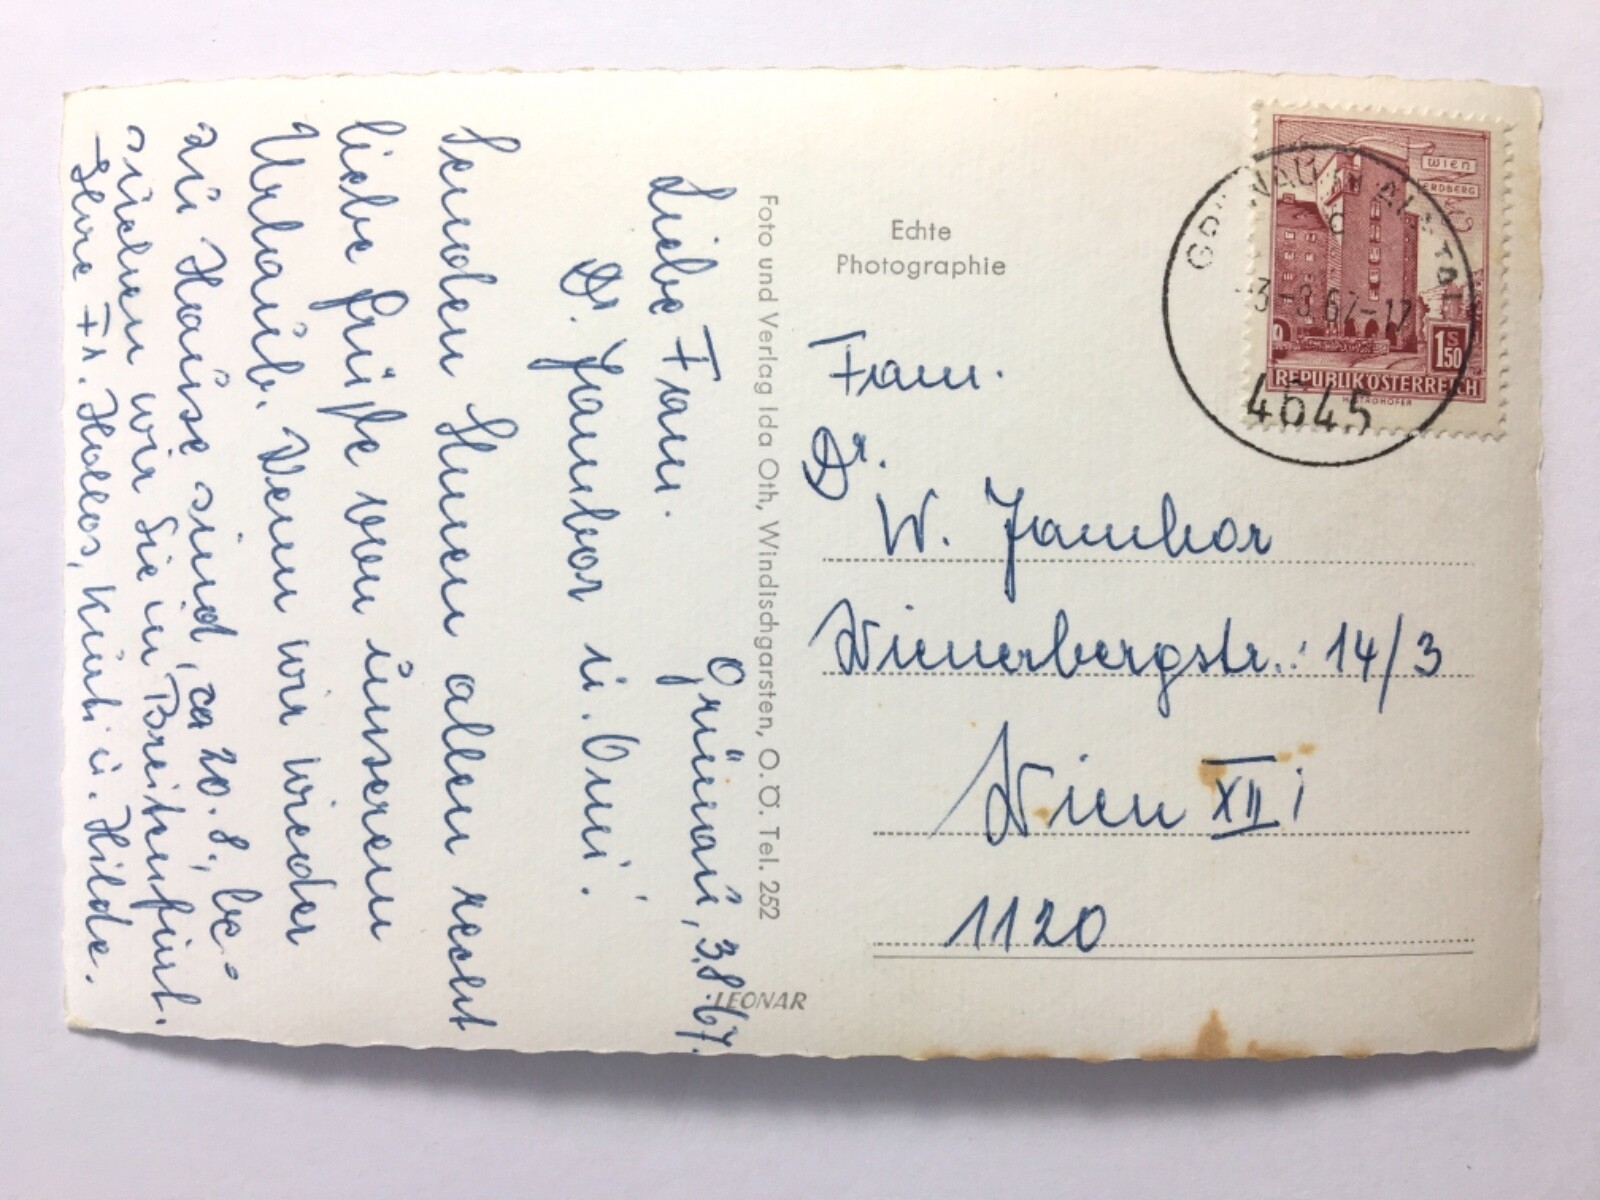 Grünau, 3.8.67.
Liebe Fam.
Dr. Jambor u. Omi!
Senden Ihnen allen recht
liebe Grüße von unserem
Urlaub. Wenn wir wieder
zu Hause sind, ca 20.8., be-
suchen wir Sie in Breitenfurt.
Ihre Fr. Hollos, Kurti u. Hilde.
Foto und Verlag Ida Oth, Windischgarsten, O.Ö. Tel. 252
LEONAR
Echte
Photographie
WIEN
ERDBERG
1 S 50
REPUBLIK ÖSTERREICH
3.-8.67-17
4645
Fam.
Dr.
W. Jambor
Wienerbergstr.: 14/3
Wien XII
1120